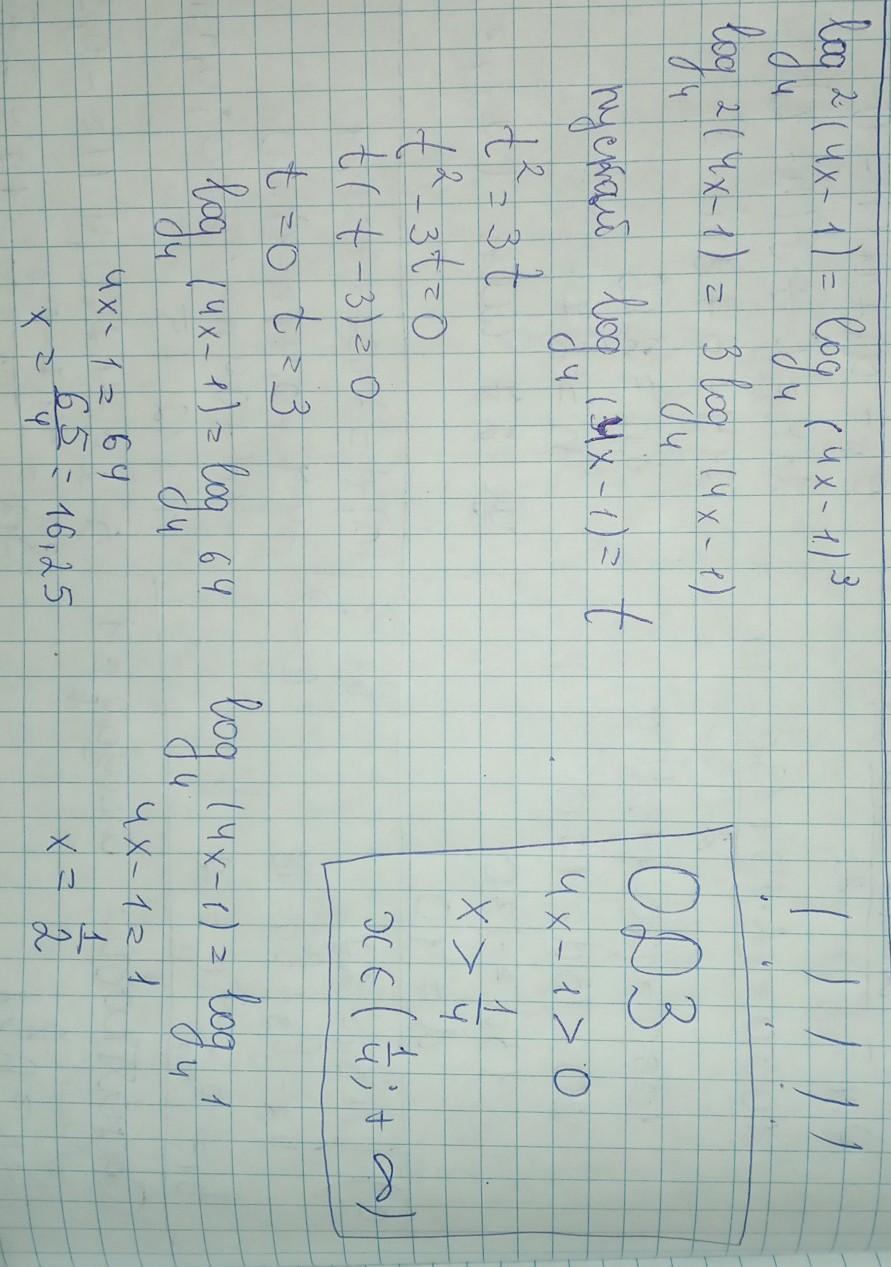 log₄²(4x-1) = log₄(4x-1)³
log₄²(4x-1) = 3log₄(4x-1)
log₄(4x-1) = t
t² = 3t
t² - 3t = 0
t(t-3) = 0
t = 0 t = 3
log₄(4x-1) = log₄ 64
4x-1 = 64
x = 65/4 = 16,25
log₄(4x-1) = log₄ 1
4x-1 = 1
x = 1/2
ОДЗ
4x-1 > 0
x > 1/4
x ∈ (1/4; +∞)